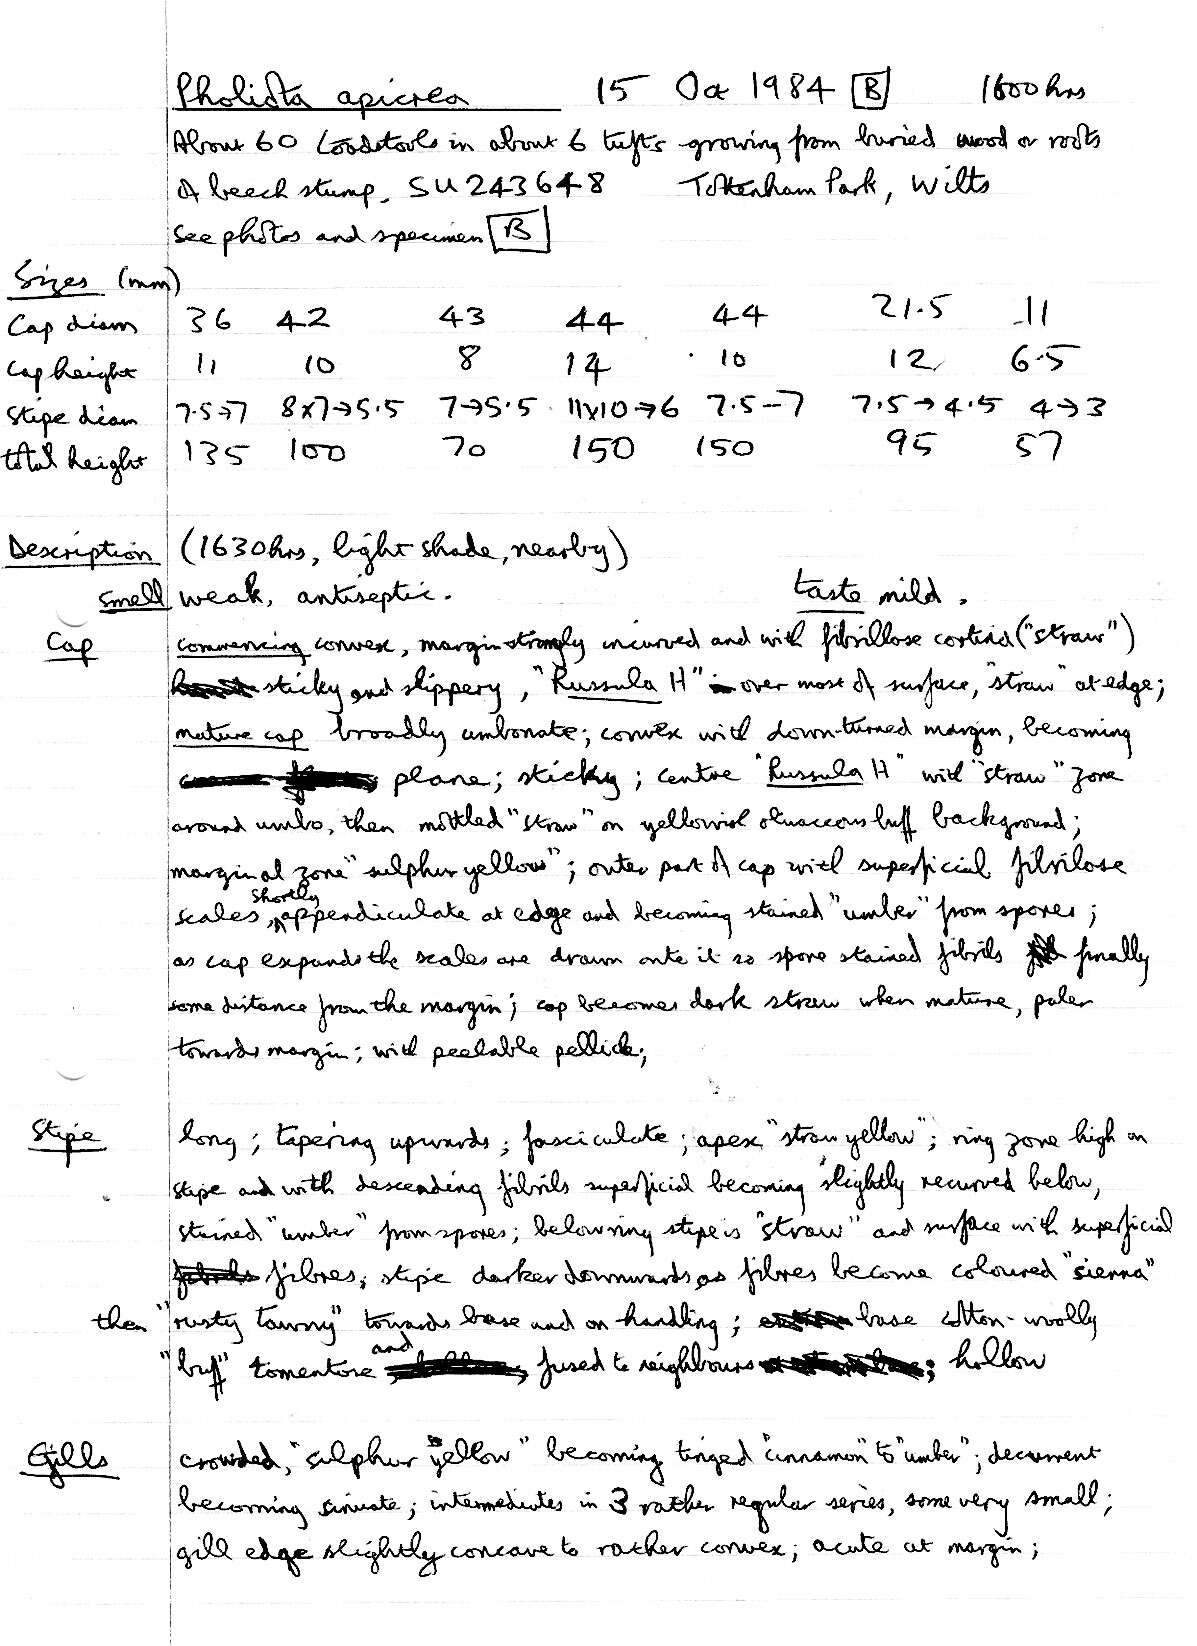 Pholiota apicrea 15 Oct 1984 [B] 1600hrs
About 60 toadstools in about 6 tufts growing from buried wood or roots
of beech stump, SU243648 Tottenham Park, Wilts
see photos and specimen [B]
Sizes (mm)
Cap diam 36 42 43 44 44 21.5 11
Cap height 11 10 8 14 10 12 6.5
Stipe diam 7.5→7 8x7→5.5 7→5.5 11x10→6 7.5-7 7.5→4.5 4→3
total height 135 100 70 150 150 95 57
Description (1630hrs, light shade, nearby)
smell weak, antiseptic. taste mild.
Cap commencing convex, margin strongly incurved and with fibrillose cortina ("straw")
sticky and slippery, "Russula H" over most of surface, "straw" at edge;
mature cap broadly umbonate; convex with down-turned margin, becoming
plane; sticky; centre "Russula H" with "straw" zone
around umbo, then mottled "straw" on yellowish olivaceous buff background;
marginal zone "sulphur yellow"; outer part of cap with superficial fibrilose
scales, shortly appendiculate at edge and becoming stained "umber" from spores;
as cap expands the scales are drawn onto it so spore stained fibrils finally
some distance from the margin; cap becomes dark straw when mature, paler
towards margin; with peelable pellicle;
Stipe long; tapering upwards; fasciculate; apex "straw yellow"; ring zone high on
stipe and with descending fibrils superficial becoming slightly recurved below,
stained "umber" from spores; below ring stipe is "straw" and surface with superficial
fibres; stipe darker downwards as fibres become coloured "sienna"
then "rusty tawny" towards base and on handling; base cotton-woolly
"buff" tomentose and fused to neighbours; hollow
Gills crowded, "sulphur yellow" becoming tinged "cinnamon" to "umber"; decurrent
becoming sinuate; intermediates in 3 rather regular series, some very small;
gill edge slightly concave to rather convex; acute at margin;